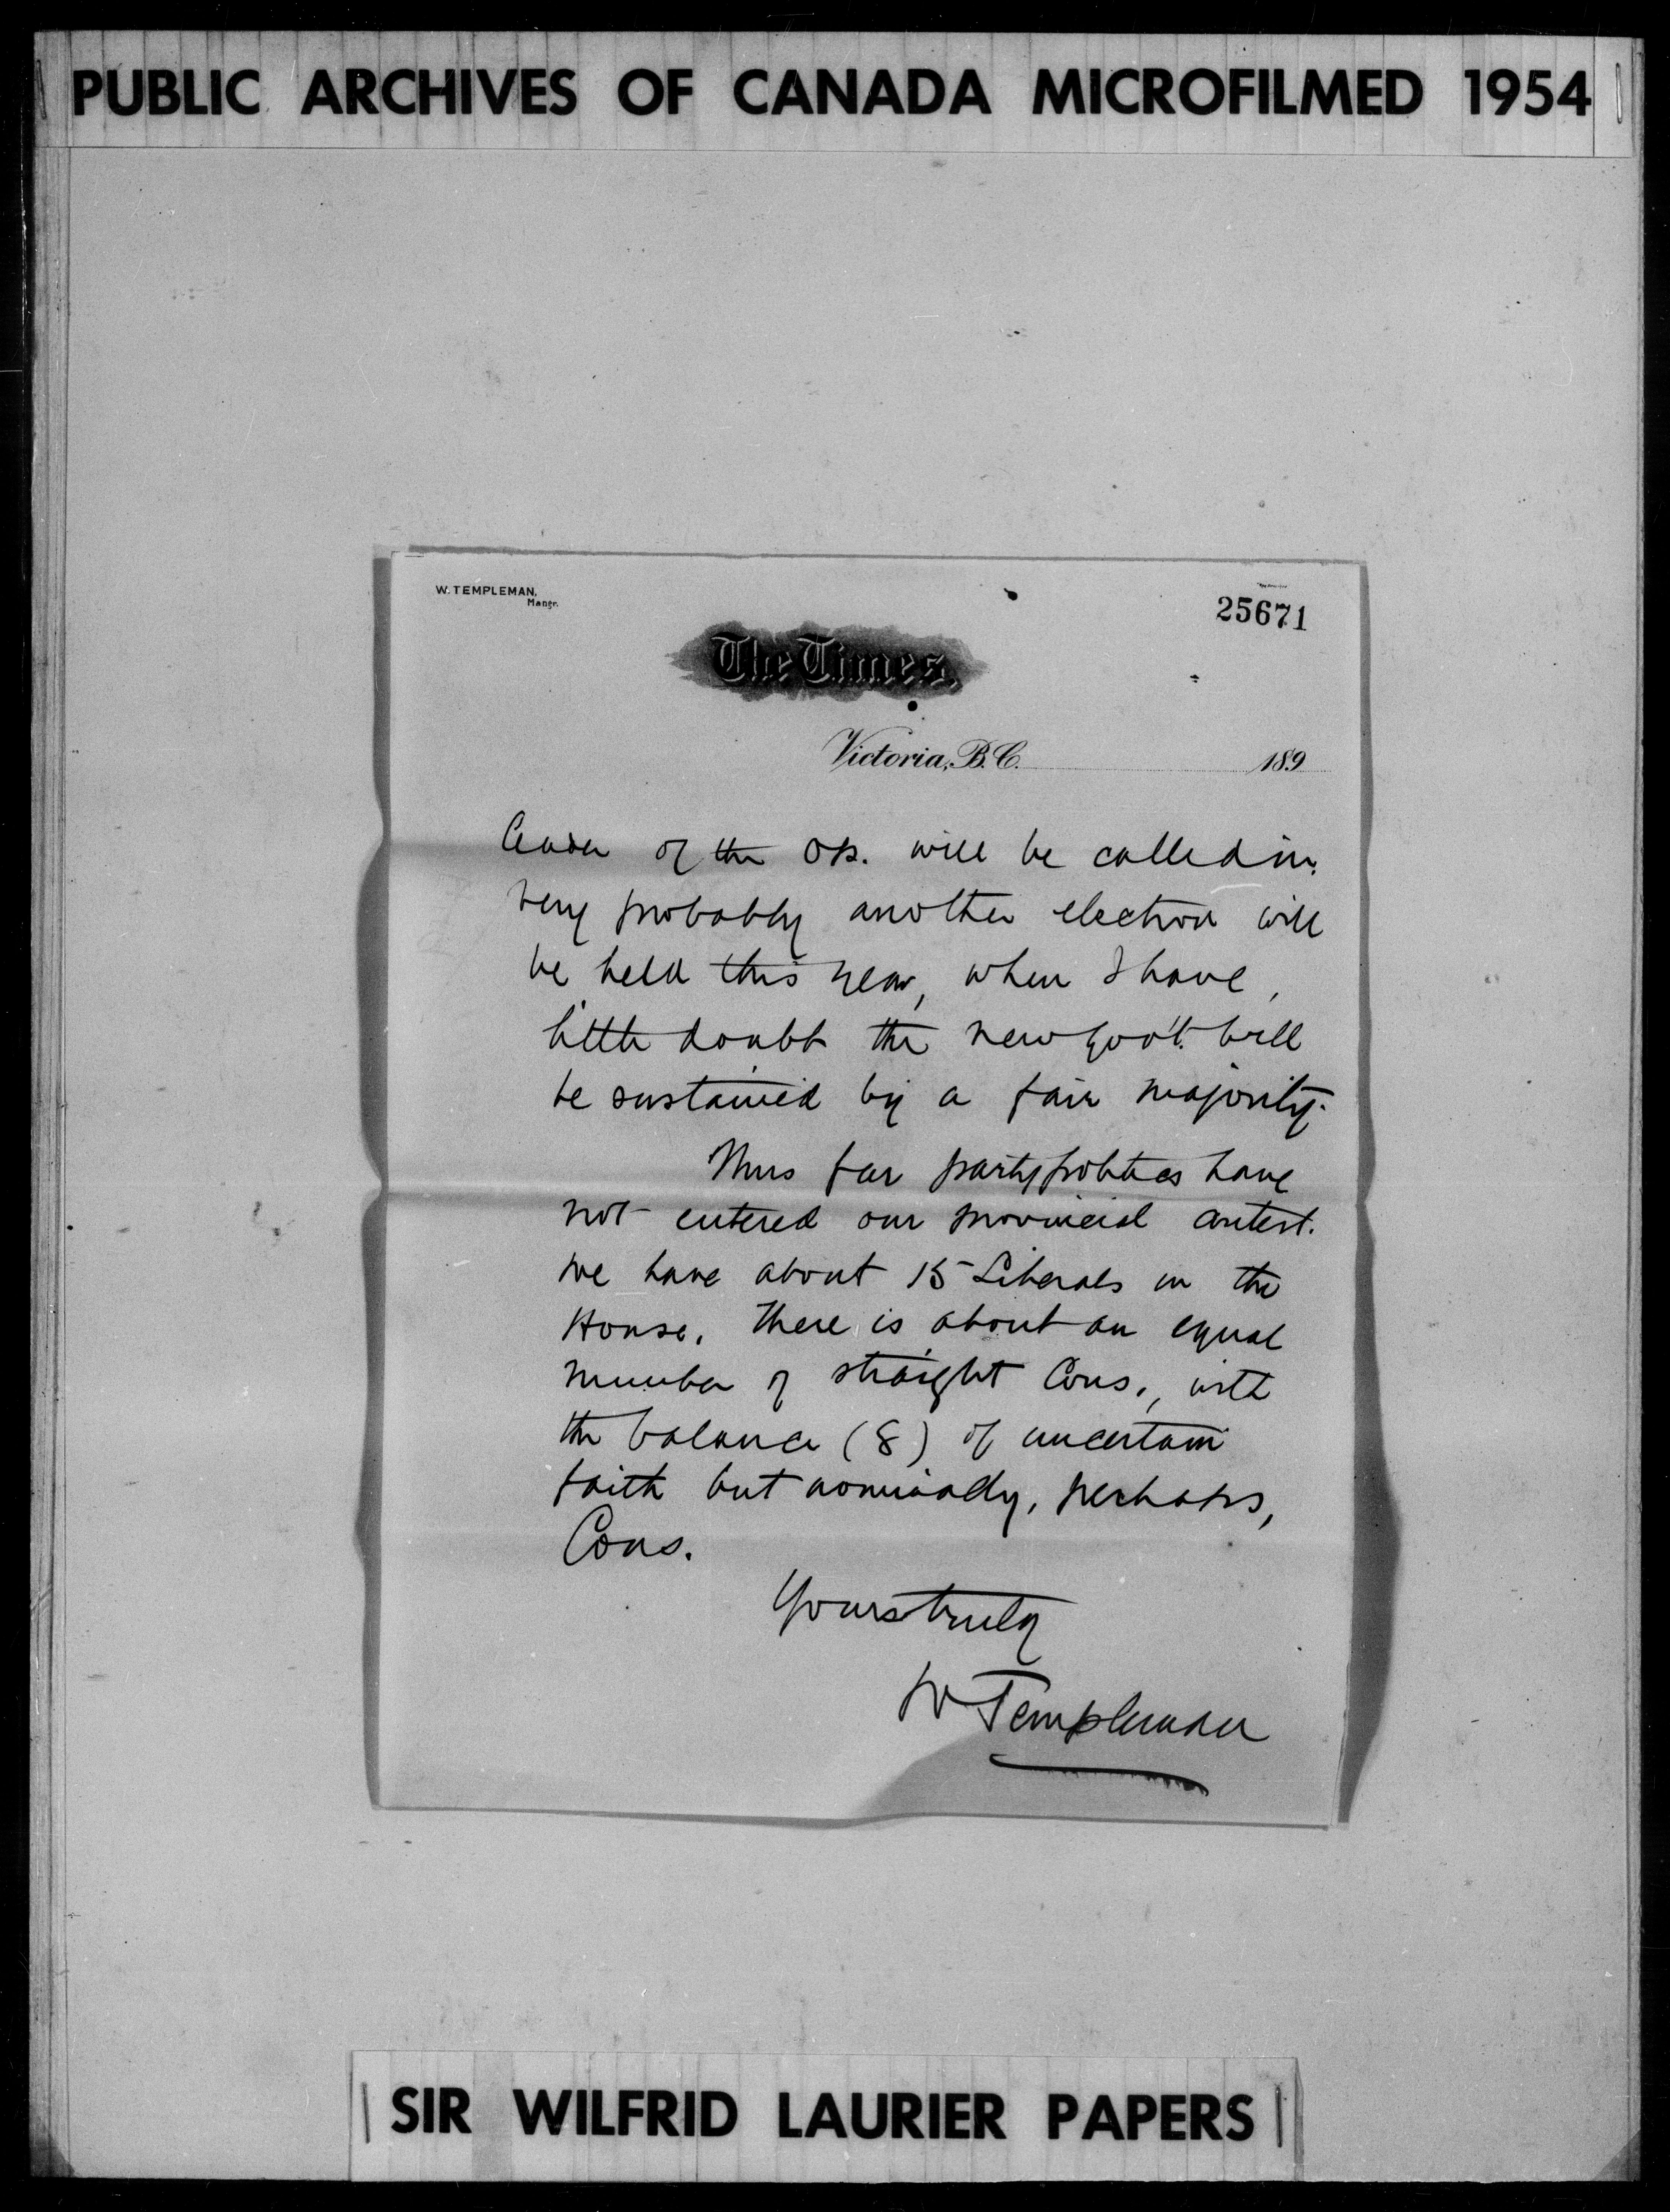 PUBLIC ARCHIVES OF CANADA MICROFILMED 1954
W. TEMPLEMAN,
Mangr.
25671
The Times,
Victoria, B.C. 189
leader of the Op. will be called in.
Very probably another election will
be held this year, when I have
little doubt the new gov't. will
be sustained by a fair majority.
Thus far party politics have
not entered our provincial contest.
We have about 15 Liberals in the
House. There is about an equal
number of straight Cons., with
the balance (8) of uncertain
faith but nominally, perhaps,
Cons.
Yours truly
W Templeman
SIR WILFRID LAURIER PAPERS